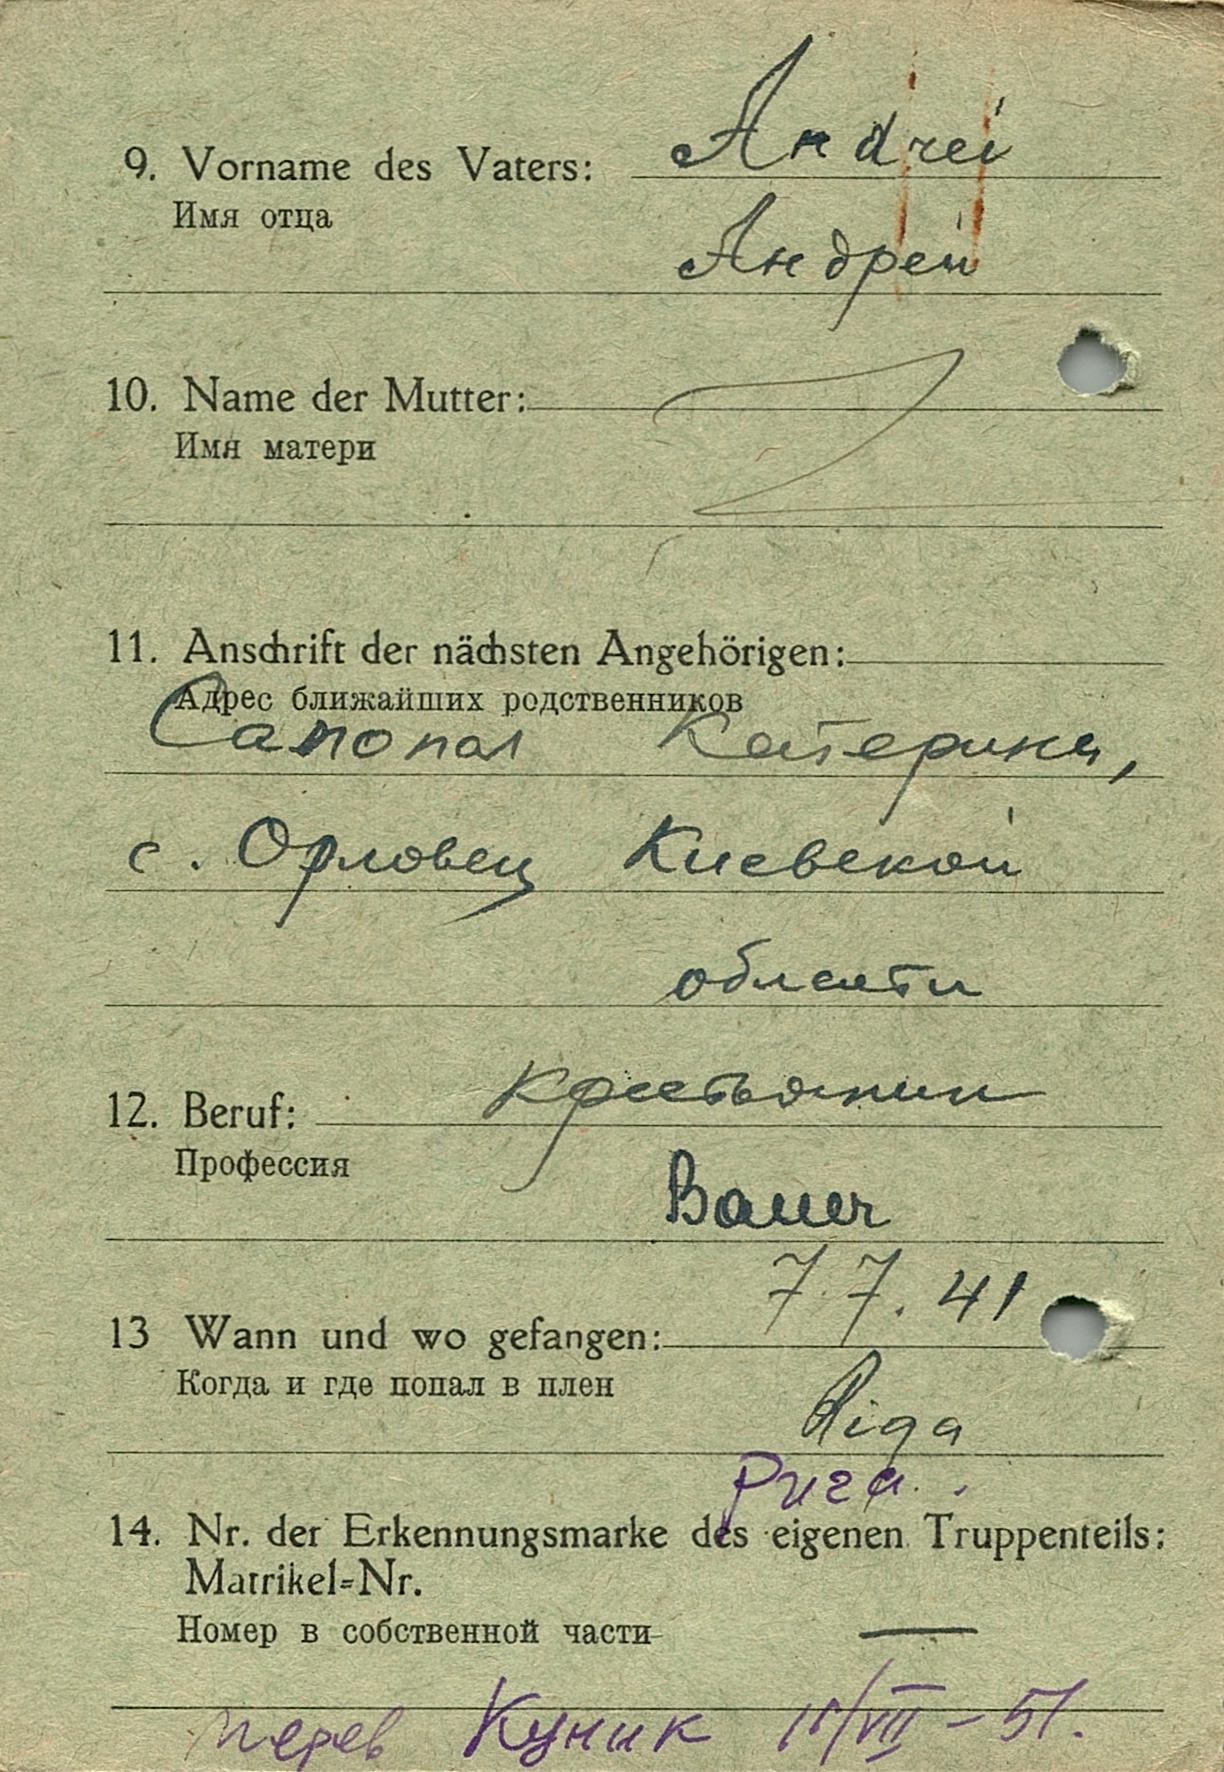 Andrei
9. Vorname des Vaters:
Имя отца
Андрей
10. Name der Mutter:
Имя матери
11. Anschrift der nächsten Angehörigen:
Адрес ближайших родственников
Сапопал Катерина,
с. Орловец Киевской
области
12. Beruf: крестьянин
Профессия
Bauer
7.7.41
13 Wann und wo gefangen:
Когда и где попал в плен
Riga
Рига.
14. Nr. der Erkennungsmarke des eigenen Truppenteils:
Matrikel=Nr.
Номер в собственной части —
перев Куник /VII – 51.